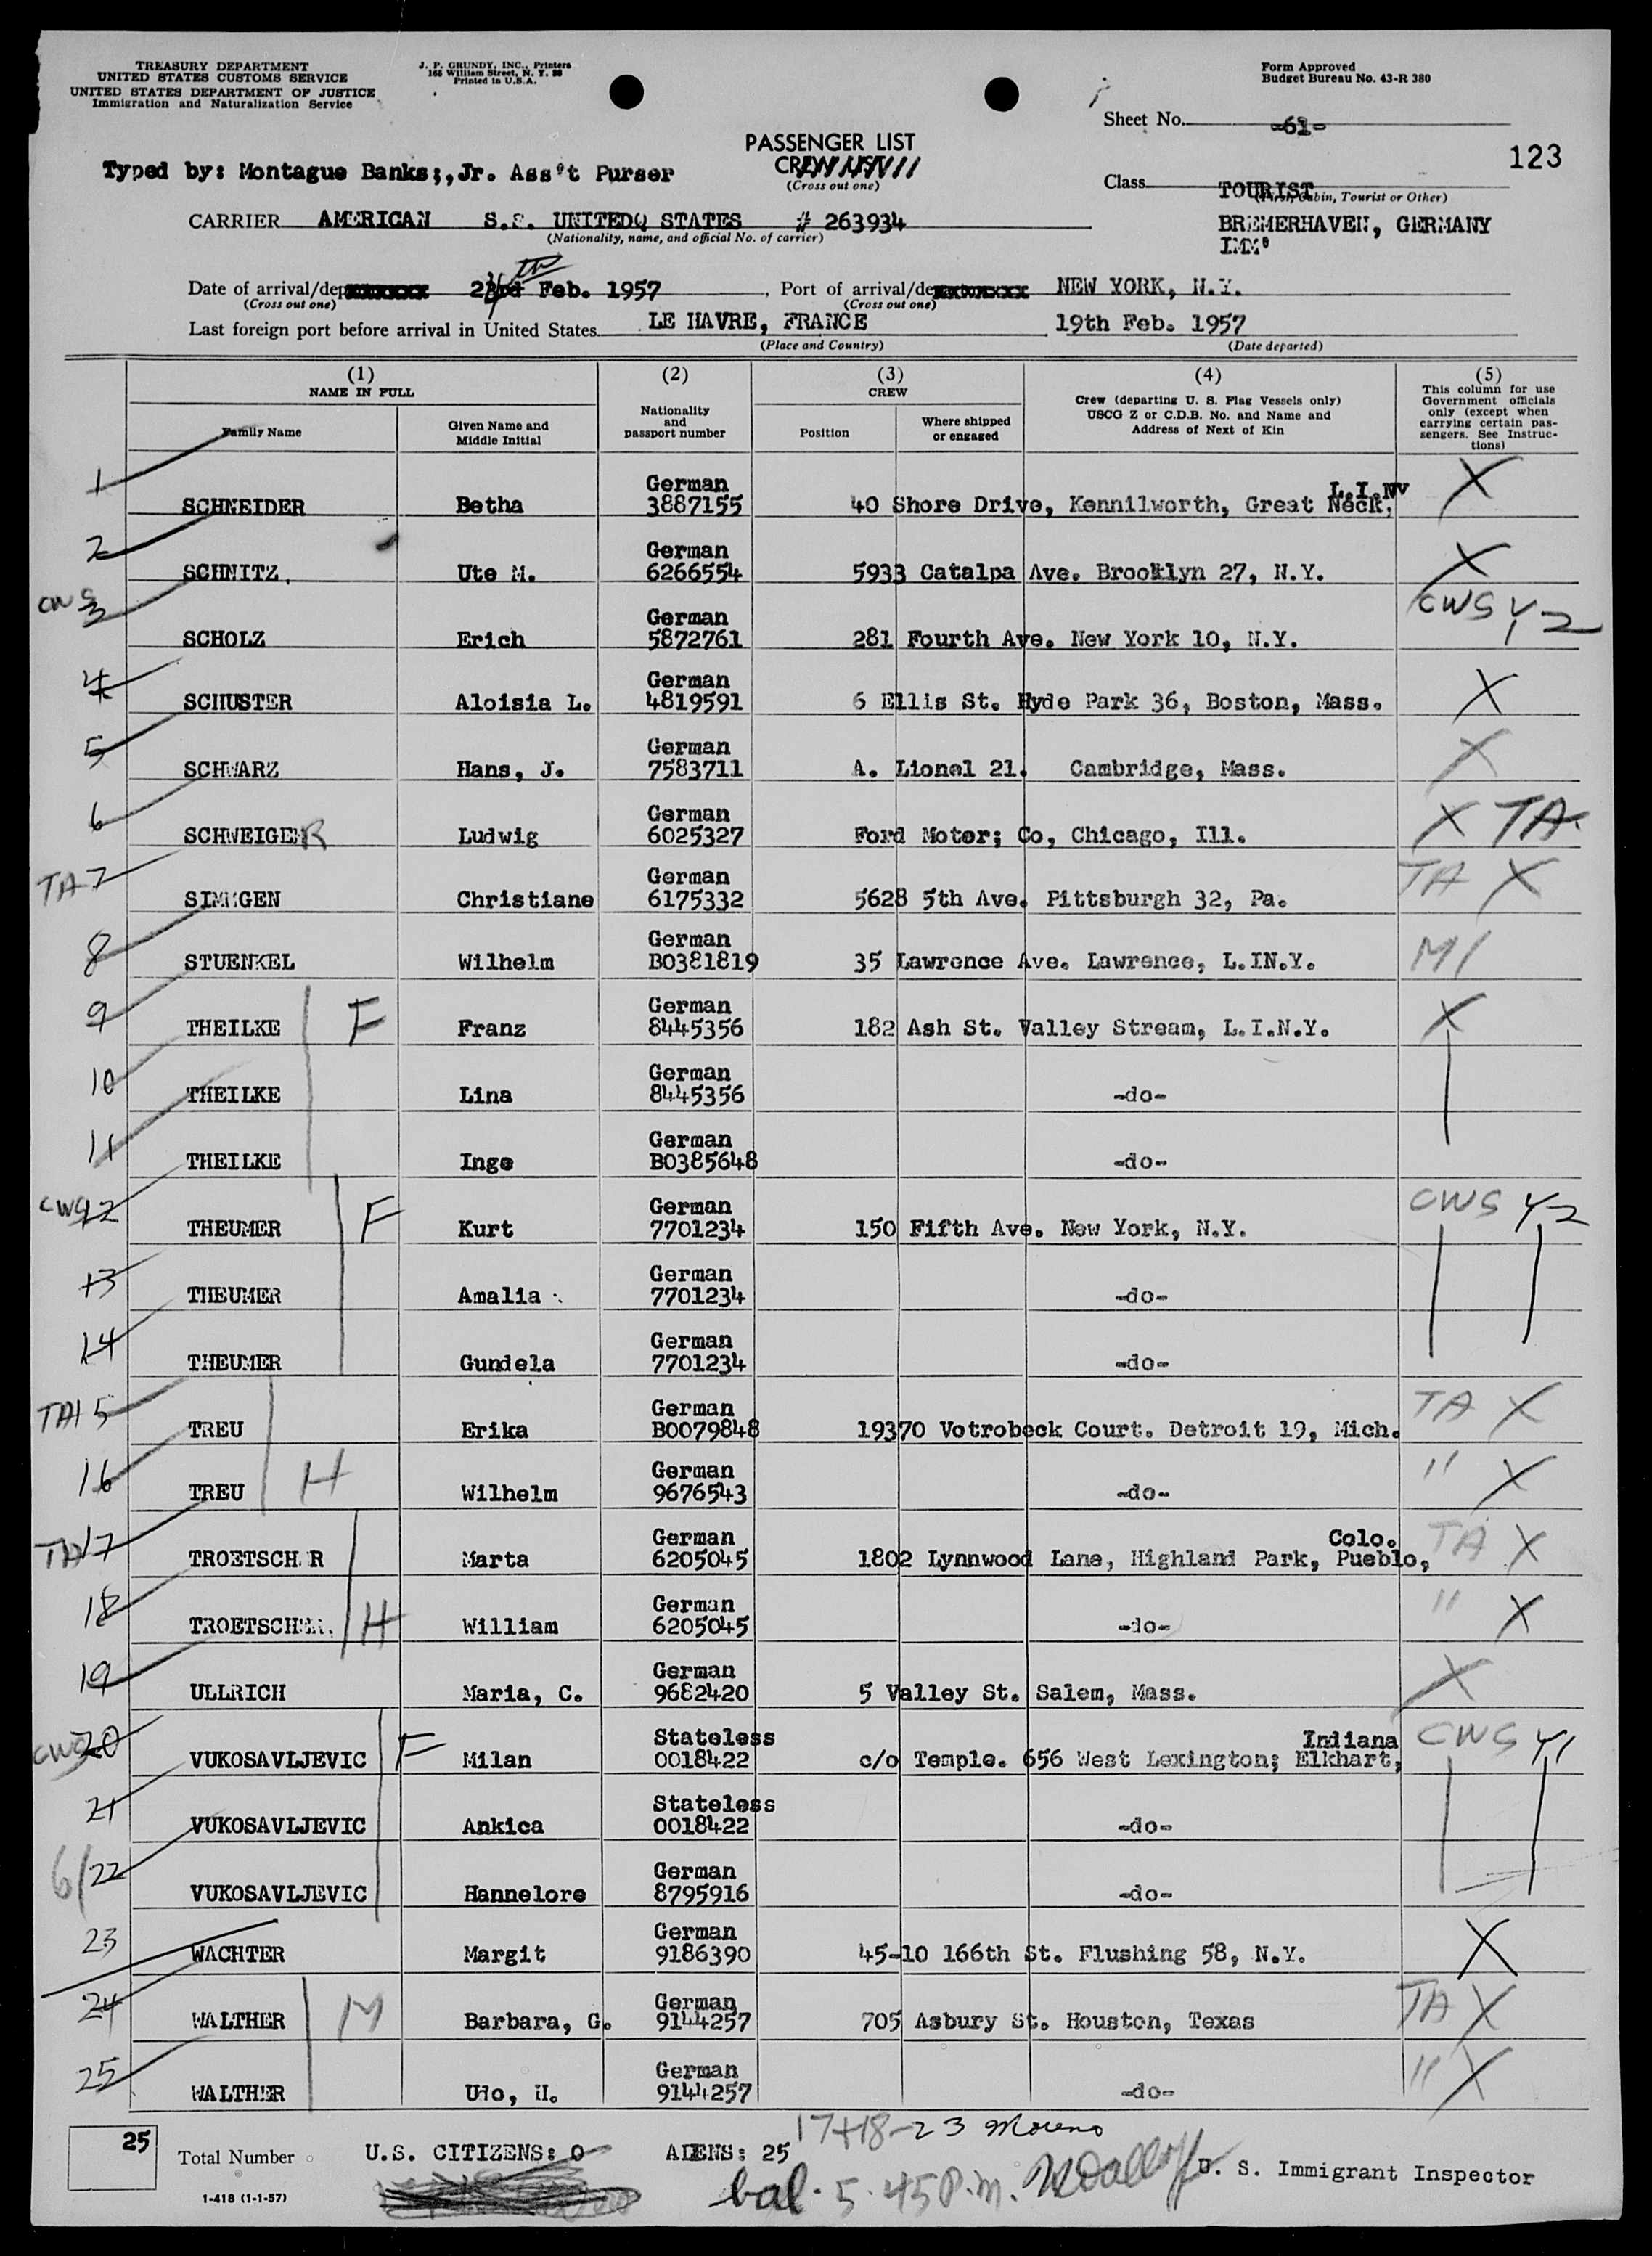 TREASURY DEPARTMENT
UNITED STATES CUSTOMS SERVICE
UNITED STATES DEPARTMENT OF JUSTICE
Immigration and Naturalization Service
J. P. GRUNDY, INC., Printers
Printed in U.S.A.
Form Approved
Budget Bureau No. 43-R 380
Sheet No. -61-
123
PASSENGER LIST
CREW LIST
(Cross out one)
Typed by: Montague Banks;,Jr. Ass't Purser
Class TOURIST
Cabin, Tourist or Other)
CARRIER AMERICAN S.S. UNITEDQ STATES # 263934
(Nationality, name, and official No. of carrier)
BREMERHAVEN, GERMANY
IMM'
Date of arrival/dep Feb. 1957, Port of arrival/de NEW YORK, N.Y.
(Cross out one) (Cross out one)
Last foreign port before arrival in United States LE HAVRE, FRANCE 19th Feb. 1957
(Place and Country) (Date departed)
(1) (2) (3) (4) (5)
NAME IN FULL
Family Name
Given Name and Middle Initial
Nationality and passport number
CREW
Position
Where shipped or engaged
Crew (departing U. S. Flag Vessels only)
USCG Z or C.D.B. No. and Name and
Address of Next of Kin
This column for use
Government officials
only (except when
carrying certain pas-
sengers. See Instruc-
tions)
1 SCHNEIDER Betha German 3887155 40 Shore Drive, Kennilworth, Great Neck, L.I.NY X
2 SCHNITZ, Ute M. German 6266554 5933 Catalpa Ave. Brooklyn 27, N.Y. X
CWS 3 SCHOLZ Erich German 5872761 281 Fourth Ave. New York 10, N.Y. CWS Y-2
4 SCHUSTER Aloisia L. German 4819591 6 Ellis St. Hyde Park 36, Boston, Mass. X
5 SCHWARZ Hans, J. German 7583711 A. Lionel 21. Cambridge, Mass. X
6 SCHWEIGER Ludwig German 6025327 Ford Motor; Co, Chicago, Ill. X TA
TA 7 Christiane German 6175332 5628 5th Ave. Pittsburgh 32, Pa. TA X
8 STUENKEL Wilhelm German B0381819 35 Lawrence Ave. Lawrence, L.IN.Y. M/
9 THEILKE F Franz German 8445356 182 Ash St. Valley Stream, L.I.N.Y. X
10 THEILKE Lina German 8445356 -do-
11 THEILKE Inge German B0385648 -do-
CWS 12 THEUMER F Kurt German 7701234 150 Fifth Ave. New York, N.Y. CWS Y-2
13 THEUMER Amalia German 7701234 -do-
14 THEUMER Gundela German 7701234 -do-
TA 15 TREU Erika German B0079848 19370 Votrobeck Court. Detroit 19, Mich. TA X
16 TREU H Wilhelm German 9676543 -do- " X
TA 17 TROETSCHER Marta German 6205045 1802 Lynnwood Lane, Highland Park, Pueblo, Colo. TA X
18 TROETSCHER H William German 6205045 -do- " X
19 ULLRICH Maria, C. German 9682420 5 Valley St. Salem, Mass. X
CWS 20 VUKOSAVLJEVIC F Milan Stateless 0018422 c/o Temple. 656 West Lexington; Elkhart, Indiana CWS Y1
21 VUKOSAVLJEVIC Ankica Stateless 0018422 -do-
6/22 VUKOSAVLJEVIC Hannelore German 8795916 -do-
23 WACHTER Margit German 9186390 45-10 166th St. Flushing 58, N.Y. X
24 WALTHER M Barbara, G. German 9144257 705 Asbury St. Houston, Texas TA X
25 WALTHER Udo, H. German 9144257 -do- " X
17+18-23 Moreno
25 Total Number U.S. CITIZENS: 0 ALIENS: 25
bal. 5.45 P.m. U. S. Immigrant Inspector
1-418 (1-1-57)